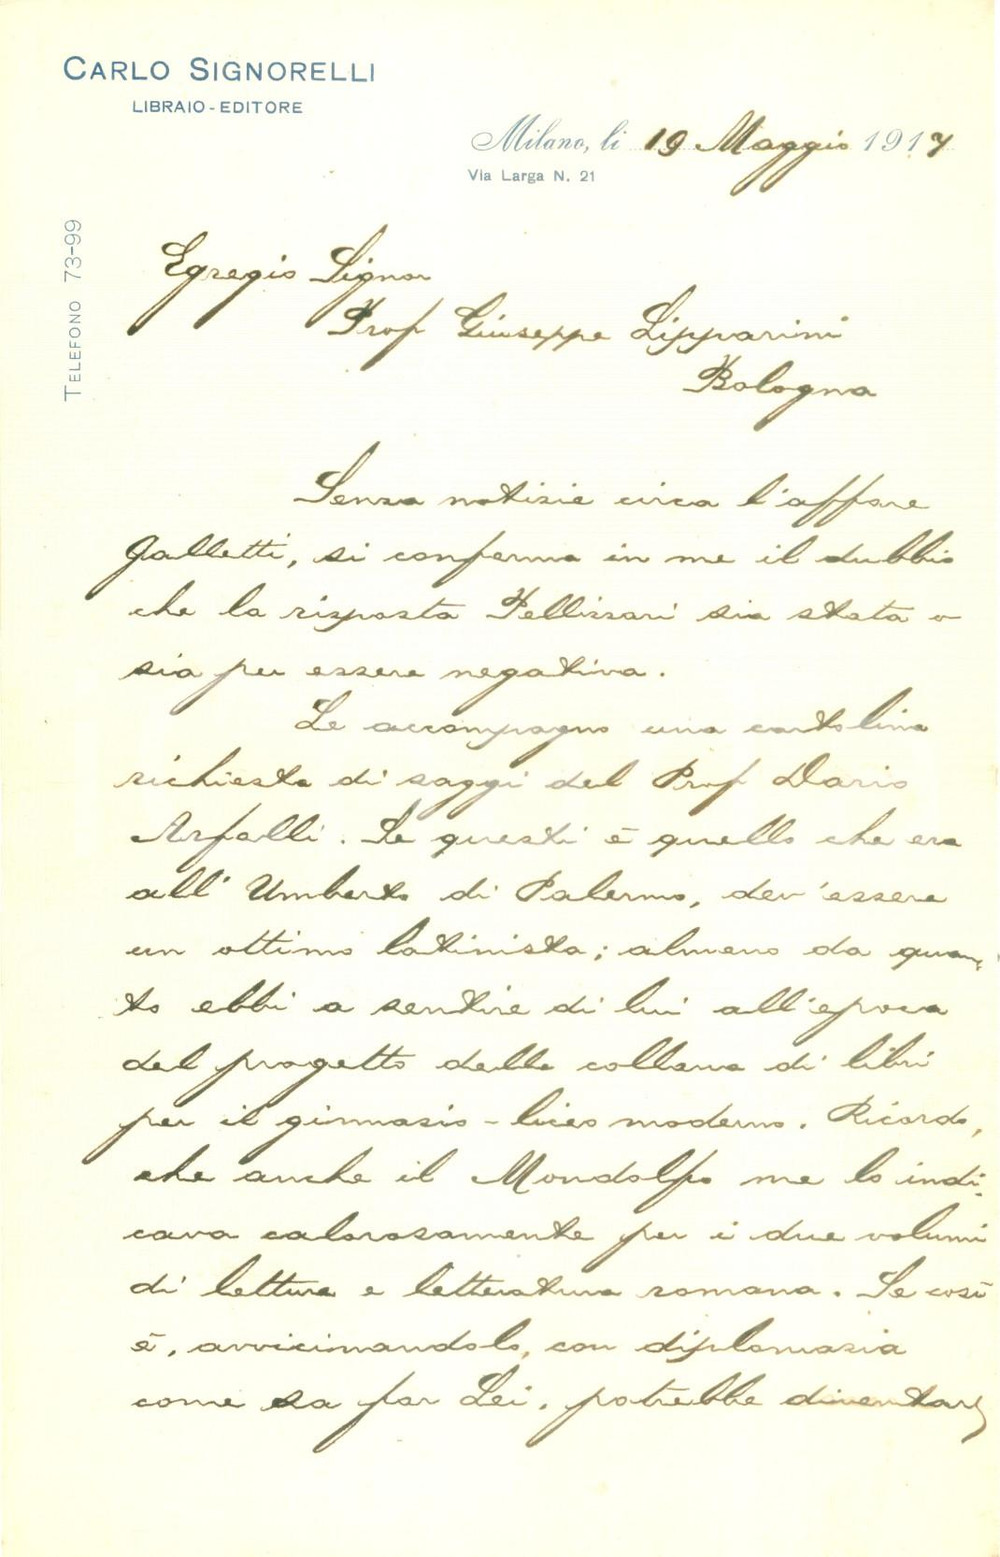 CARLO SIGNORELLI
LIBRAIO-EDITORE
Milano, li 19 Maggio 1917
Via Larga N. 21
TELEFONO 73-99
Egregio Signor
Prof Giuseppe Lipparini
Bologna
Senza notizie circa l'affare
Galletti, si conferma in me il dubbio
che la risposta Pellizzari sia stata o
sia per essere negativa.
Le accompagno una cartolina
richiesta di saggi del Prof Dario
Arfelli. Se questi è quello che era
all' Umberto di Palermo, dev'essere
un ottimo latinista; almeno da quan-
to ebbi a sentire di lui all'epoca
del progetto della collana di libri
per il ginnasio-liceo moderno. Ricordo,
che anche il Mondolfo me lo indi-
cava calorosamente per i due volumi
di lettura e letteratura romana. Se così
è, avvicinandolo, con diplomazia
come sa far Lei, potrebbe diventare